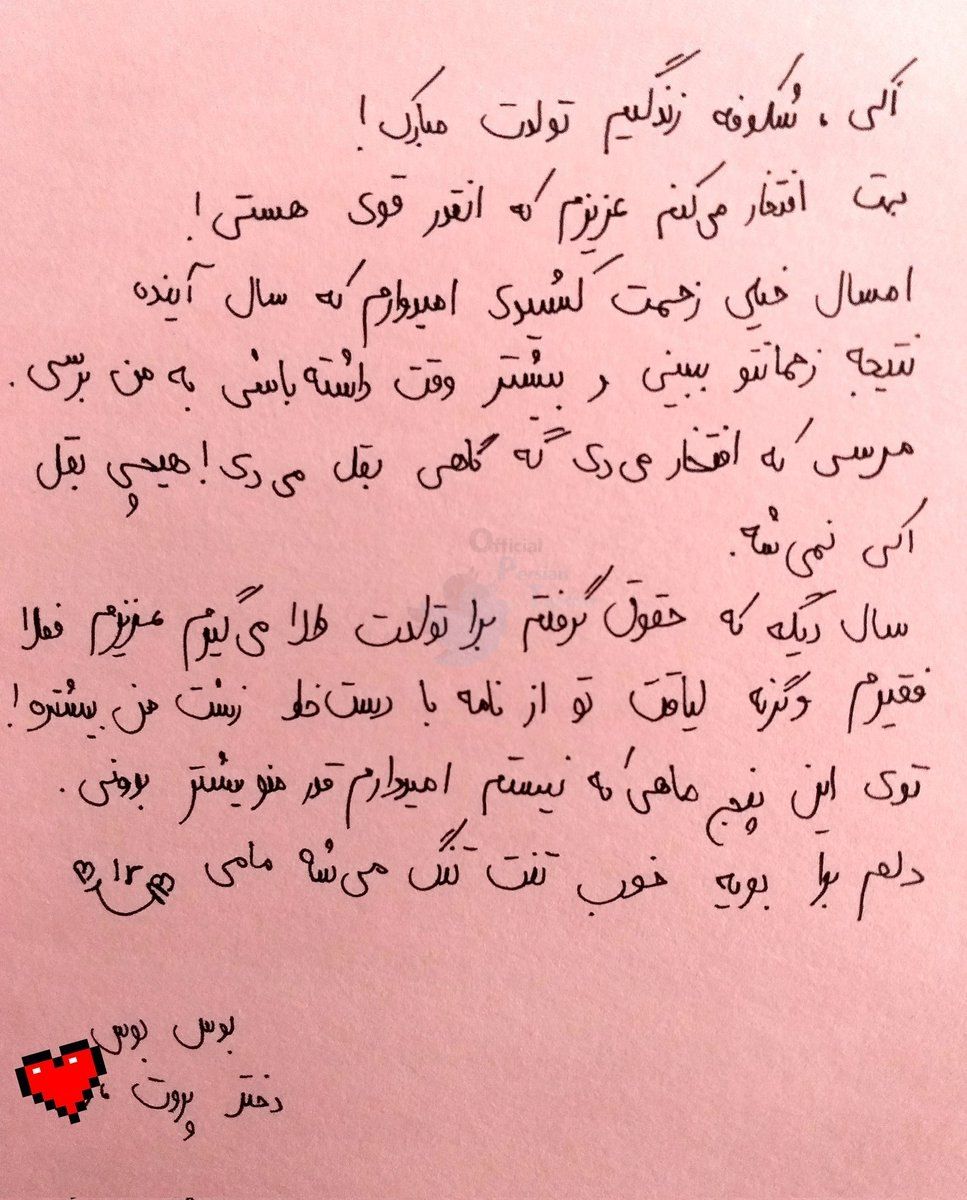 اکی ، شکوفه زندگیم تولدت مبارک!
بهت افتخار می‌کنم عزیزم که انقدر قوی هستی!
امسال خیلی زحمت کشیدی امیدوارم که سال آینده
نتیجه زحماتتو ببینی و بیشتر وقت داشته باشی به من برسی.
مرسی که افتخار می‌دی که گاهی بقل می‌دی! هیچی بقل
اکی نمی‌شه.
سال دیگه که حقوق گرفتم برا تولدت طلا می‌گیرم عزیزم فعلا
فقیرم وگرنه لیاقت تو از نامه با دست‌خط زشت من بیشتره!
توی این پنج ماهی که نیستم امیدوارم قدر منو بیشتر بدونی.
دلم برا بویه خوب تنت تنگ می‌شه مامی
بوس بوس
دختر پروت ،
Official
Persian